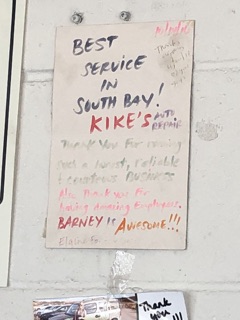 BEST
SERVICE
IN
SOUTH BAY!
KIKE'S AUTO
REPAIR
Thank You For
such a honest, reliable
& courteous BUSINESS
Also Thank You For
having amazing Employees.
BARNEY is AWESOME!!!
Thanks
Thank
you!!!